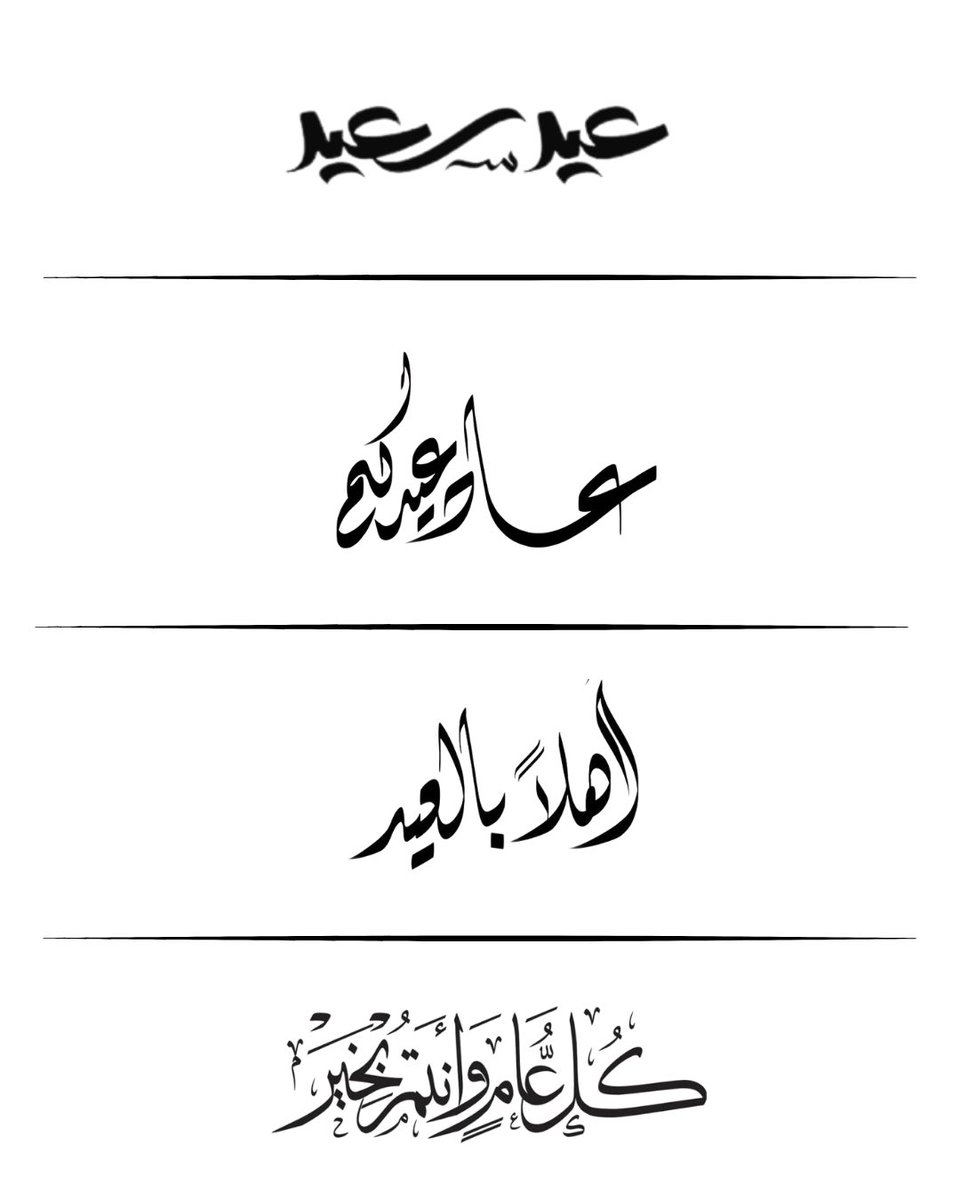 عيد سعيد
عاد عيدكم
اهلاً بالعيد
كُل عَّام وَأنتُم بِخَيرَ